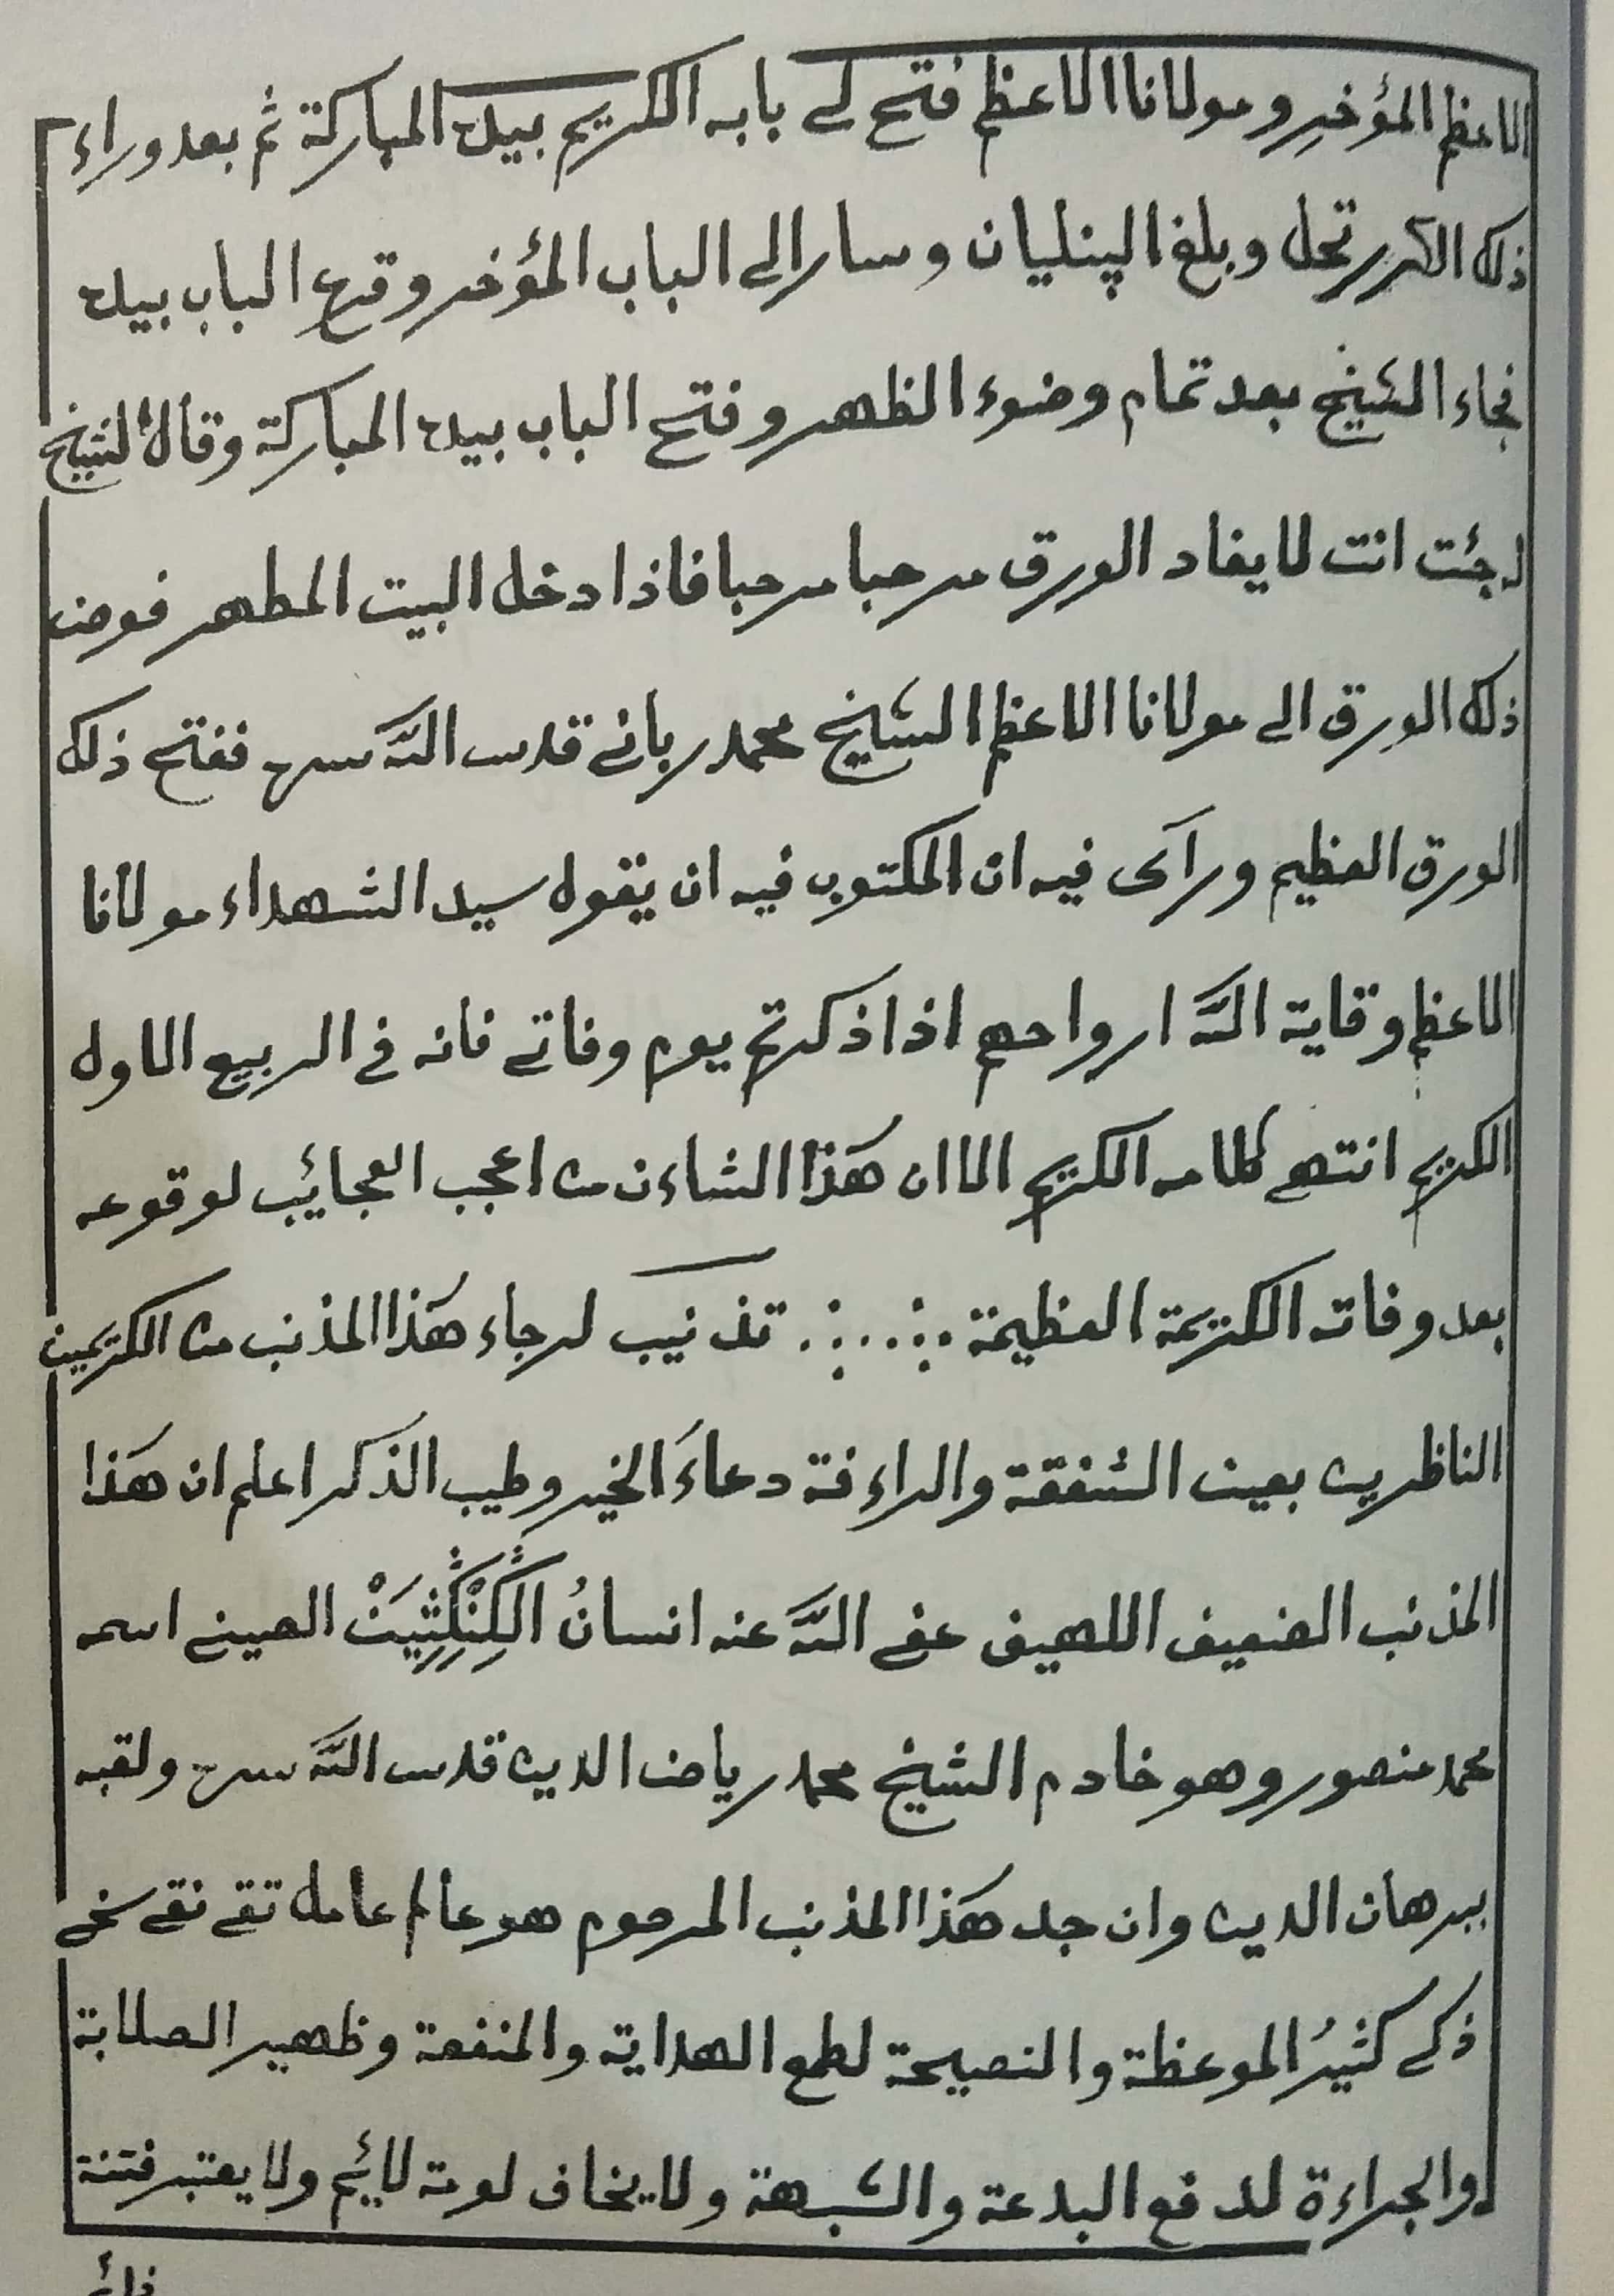 الاعظم المؤخر ومولانا الاعظم فتح لے بابه الكريم بيده المباركة ثم بعد وراء
ذلك الكرر تحل وبلغ الپنليان وسار الى الباب المؤخر وقرع الباب بيده
فجاء الشيخ بعد تمام وضوء الظهر وفتح الباب بيده المباركة وقال الشيخ
لجئت انت لايفاد الورق مرحبا مرحبا فاذا دخل البيت المطهر فوض
ذلك الورق الى مولانا الاعظم الشيخ محمد ربانے قدس اللّٰه سره ففتح ذلك
الورق العظيم ورآى فيه ان المكتوب فيه ان يقول سيد الشهداء مولانا
الاعظم وقاية اللّٰه ارواحهم اذا ذكرتم يوم وفاتے فانه فے الربيع الاول
الكريم انتهى كلامه الكريم الا ان هٰذا الشاءن من اعجب العجائب لوقوعه
بعد وفاته الكريمة العظيمة تذنيب لرجاء هٰذا المذنب من الكريمين
الناظرين بعين الشفقة والراءفة دعاءَ الخير وطيب الذكر اعلم ان هٰذا
المذنب الضعيف اللهيف عفے اللّٰه عنه انسانُ الصينے اسمه
محمد منصور وهو خادم الشيخ محمد رياض الدين قدس اللّٰه سره ولقبه
ببرهان الدين وان جد هٰذا المذنب المرحوم هو عالم عامل تقے نقے سخے
ذكے كثيرُ الموعظة والنصيحة لطمع الهداية والمنفعة وظهير الصلابة
والجراءة لدفع البدعة والشبهة ولا يخاف لومة لائم ولا يعتبر فتنة